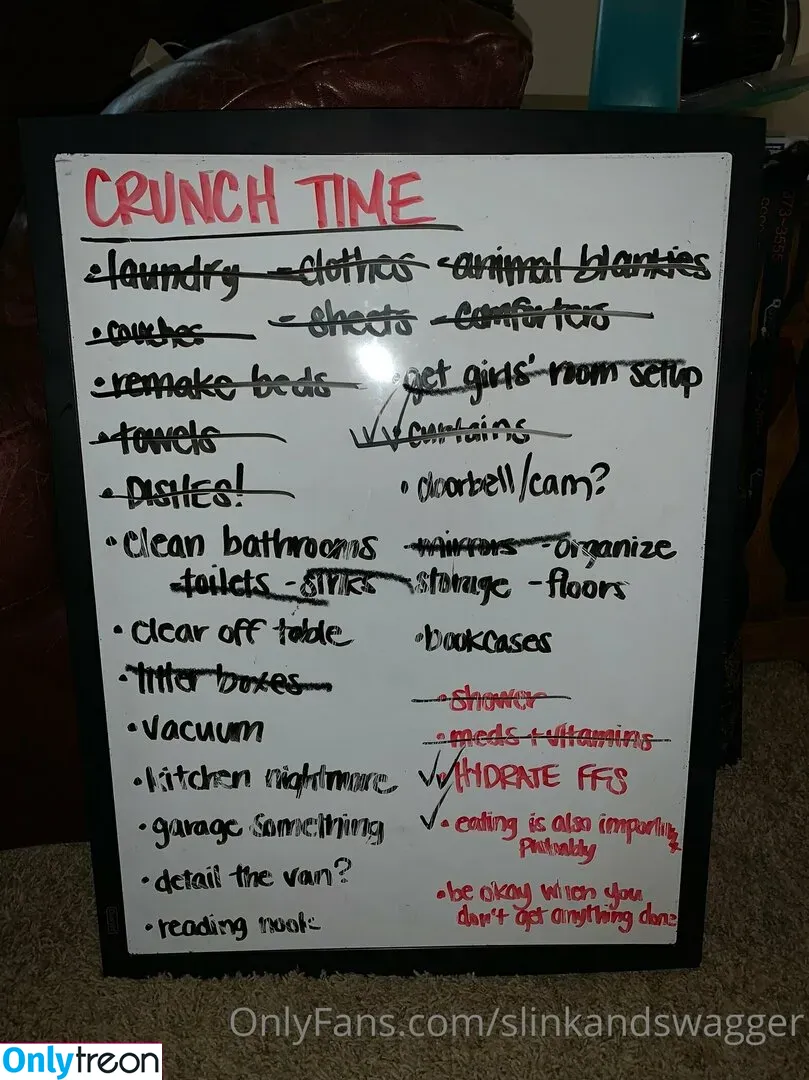 CRUNCH TIME
• laundry - clothes - animal blankies
• couches - sheets - comforters
• remake beds • get girls' room setup
• towels • curtains
• DISHES! • doorbell/cam?
• clean bathrooms - mirrors - organize
toilets - sinks storage - floors
• clear off table • bookcases
• litter boxes • shower
• vacuum • meds + vitamins
• kitchen nightmare • HYDRATE FFS
• garage something • eating is also
Probably
• detail the van? • be okay when you
• reading nook don't get anything done
OnlyFans.com/slinkandswagger
Onlytreon